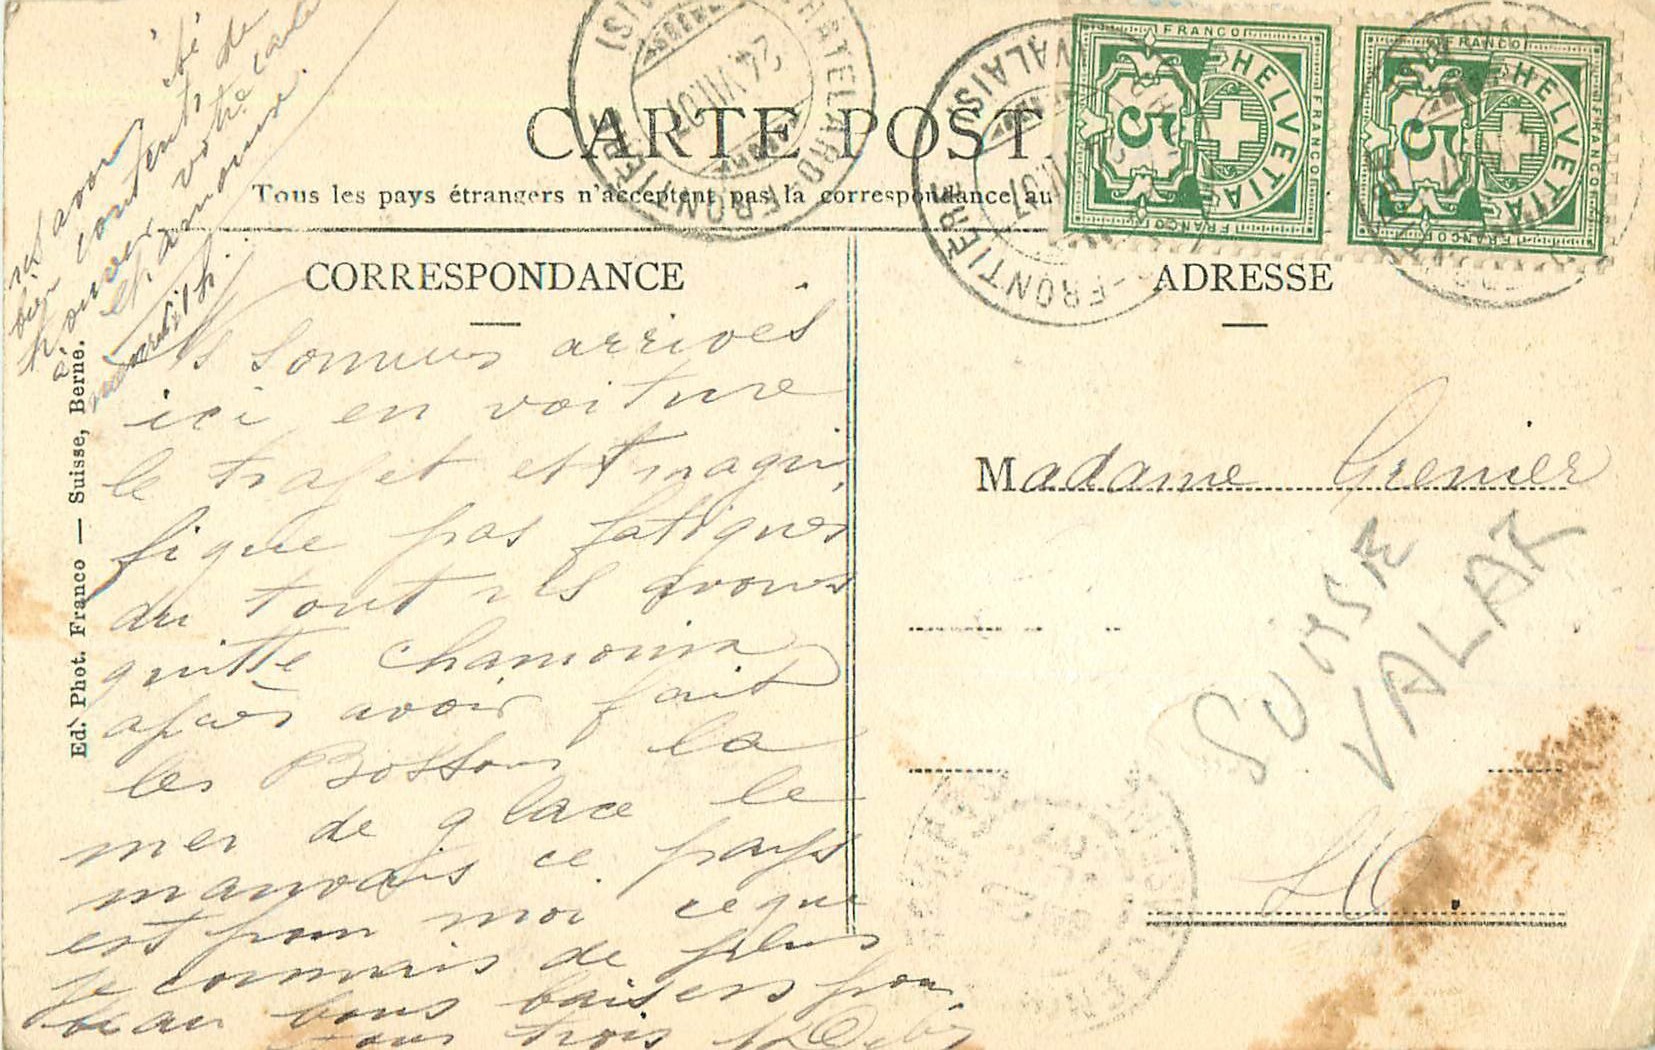 CARTE POST
Tous les pays étrangers n'acceptent pas la correspondance au
CORRESPONDANCE
ADRESSE
Ns sommes arrivés
ici en voiture
le trajet est magni
fique pas fatigués
du tout ns avons
quitté Chamonix
après avoir fait
les Bossons la
mer de glace le
mauvais ce pays
est pour moi ce que
je connais de plus
beau bons baisers pour
vous trois
bien contents de
trouver votre carte
à
Ed. Phot. Franco — Suisse, Berne.
Madame Grenier
SUISSE
VALAIS
FRANCO
HELVETIA
5
FRANCO
FRANCO
FRANCO
HELVETIA
5
FRANCO
FRANCO
CHATELARD-FRONTIÈRE
24.VII.07
(VALAIS)
-FRONTIÈRE
VII.07